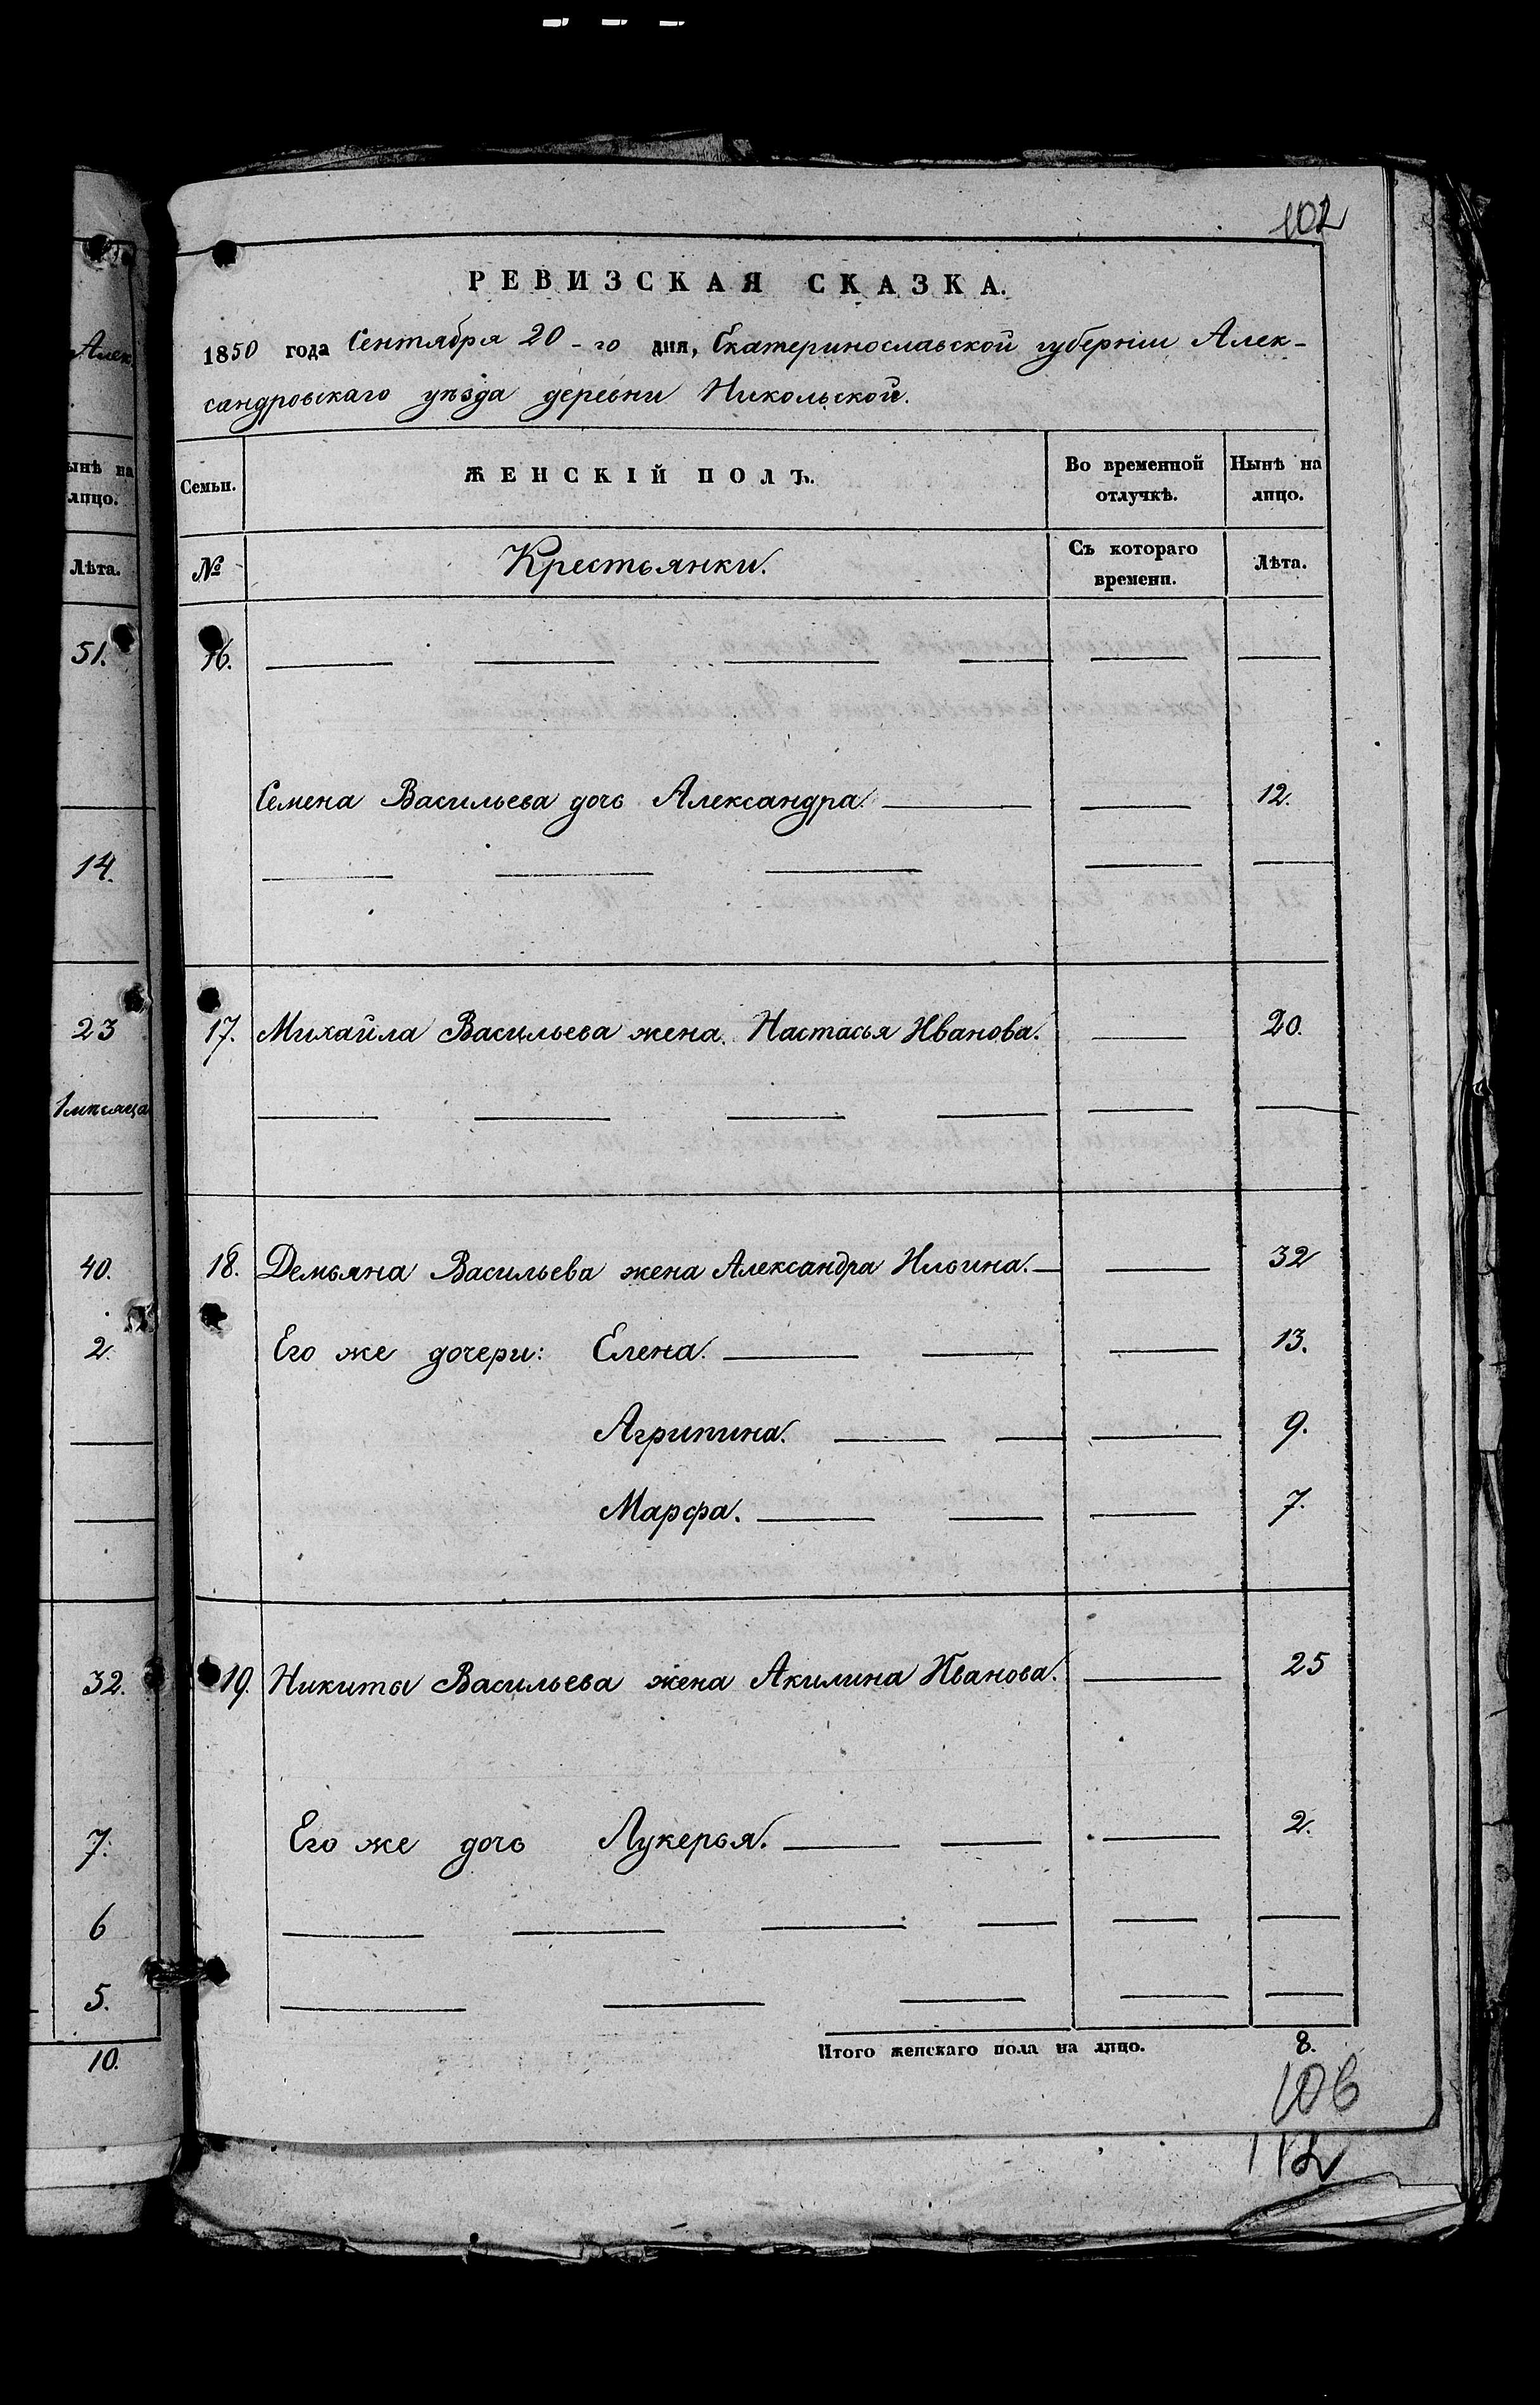 102
РЕВИЗСКАЯ СКАЗКА.
1850 года Сентября 20-го дня, Екатеринославской губерніи Алек-
сандровскаго уѣзда деревни Никольской.
Семьи. ЖЕНСКІЙ ПОЛЪ. Во временной отлучкѣ. Нынѣ на лицо.
№ Крестьянки. Съ котораго времени. Лѣта.
16.
Семена Васильева дочь Александра. 12.
17. Михайла Васильева жена Настасья Иванова. 20.
18. Демьяна Васильева жена Александра Ильина. 32
Его же дочери: Елена. 13.
Агрипина. 9.
Марфа. 7.
19. Никиты Васильева жена Акилина Иванова. 25
Его же дочь Лукерья. 2.
Итого женскаго пола на лицо. 8.
106
112
Алек
ынѣ на
лицо.
Лѣта.
51.
14.
23
1 мѣсяца
40.
2.
32.
7.
6
5.
10.